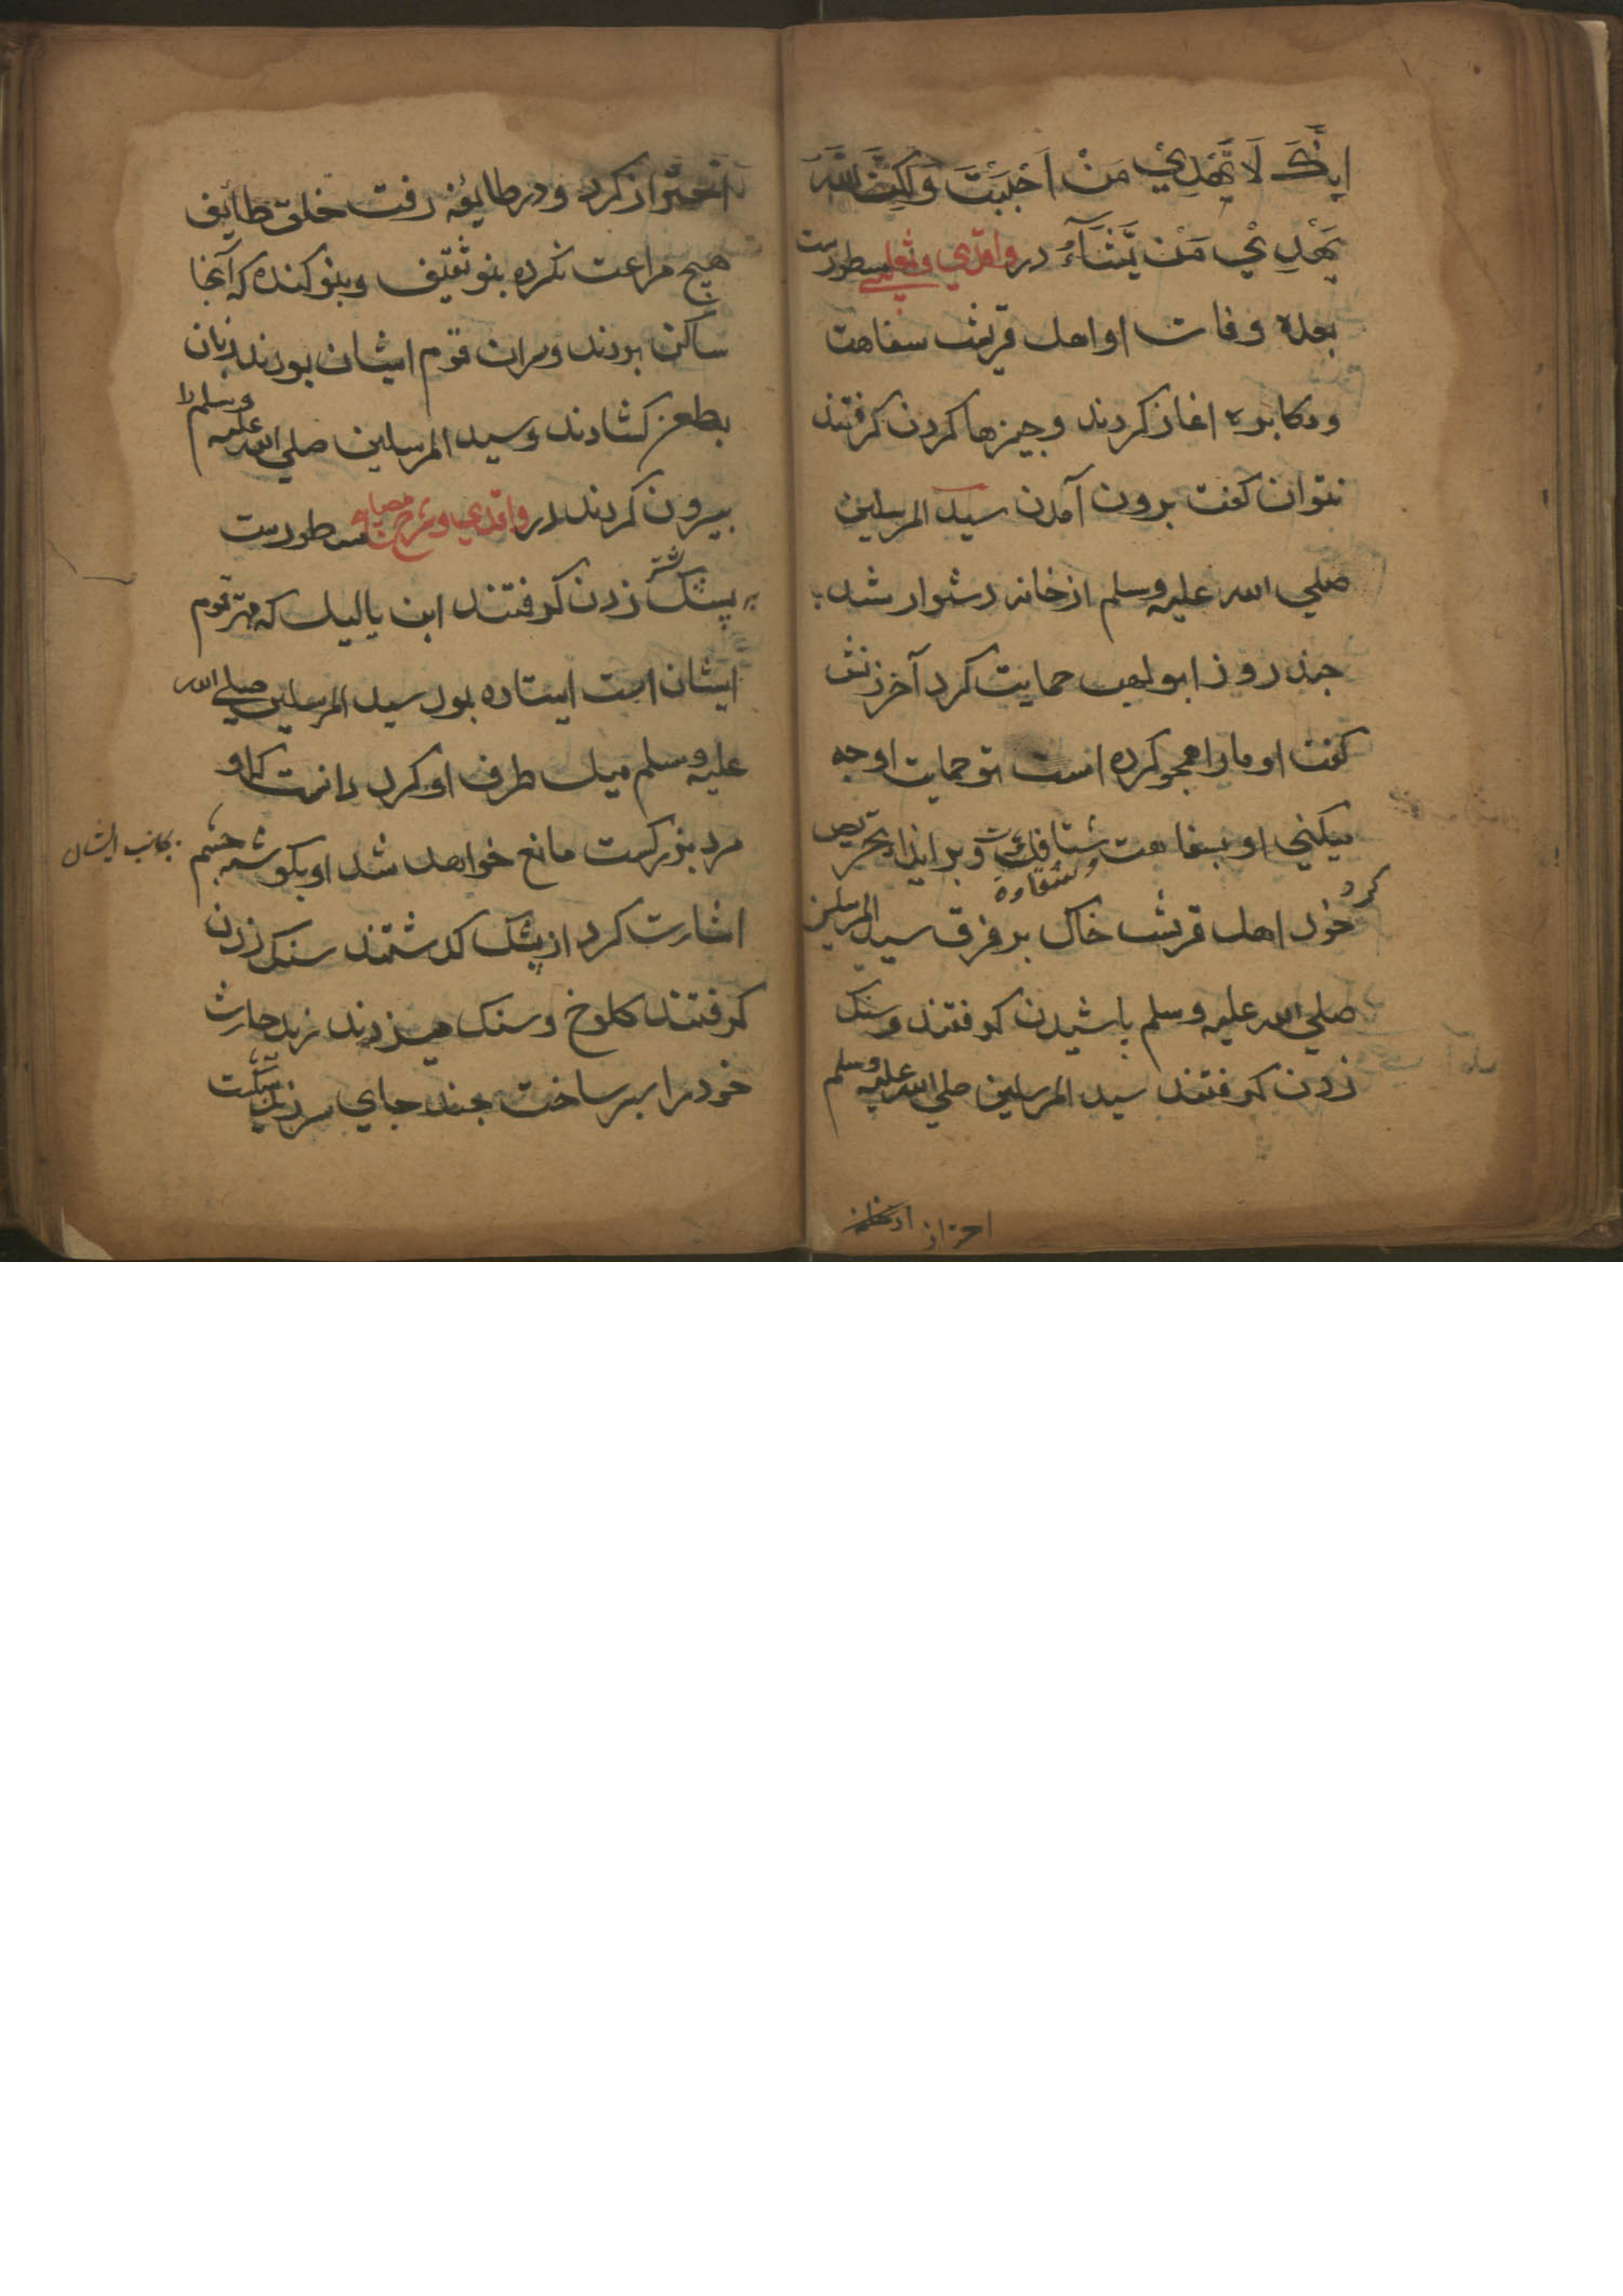 اِنَّكَ لَا تَهْدِيْ مَنْ اَحْبَبْتَ وَلٰكِنَّ اللّٰهَ
يَهْدِيْ مَنْ يَّشَآءُ در واقدي وثعلبي مسطورست
بعده وفات او اهل قريش سفاهت
ومكابره اغاز كردند وجيزها كردن كرفتند
نتوان كفت برون آمدن سيد المرسلين
صلي الله عليه وسلم از خانه دشوار شد
جند روز ابولهب حمايت كرد آخر زنش
كفت او مارا هجو كرده است تو حمايت او جه
ميكني او بسفاهت وشقاوة شتافت وبر ايذا تحريص
كرد خود اهل قريش خاك بر فرق سيد المرسلين
صلي الله عليه وسلم باشيدن كرفتند وسنك
زدن كرفتند سيد المرسلين صلي الله عليه وسلم
احتراز
احتراز كرد ودر طايفه رفت خلق طايف
هيج مراعت نكرده بنو ثقيف وبنو كنده كه آنجا
ساكن بودند وسران قوم ايشان بودند زبان
بطعن كشادند وسيد المرسلين صلي الله عليه وسلم را
بيرون كردند در واقدي وشرح مصابيح مسطورست
به پشك شتر زدن كرفتند ابن ياليل كه مهتر قوم
ايشان است ايستاده بود سيد المرسلين صلي الله
عليه وسلم ميل طرف او كرد دانست كه او
مرد بزركست مانع خواهد شد او بكوشه جشم
بجانب ايشان
اشارت كرد از پشك كذشتند سنك زدن
كرفتند كلوخ وسنك ميزدند زيد حارث
خود را سپر ساخت جند جاي سر زيد شكست